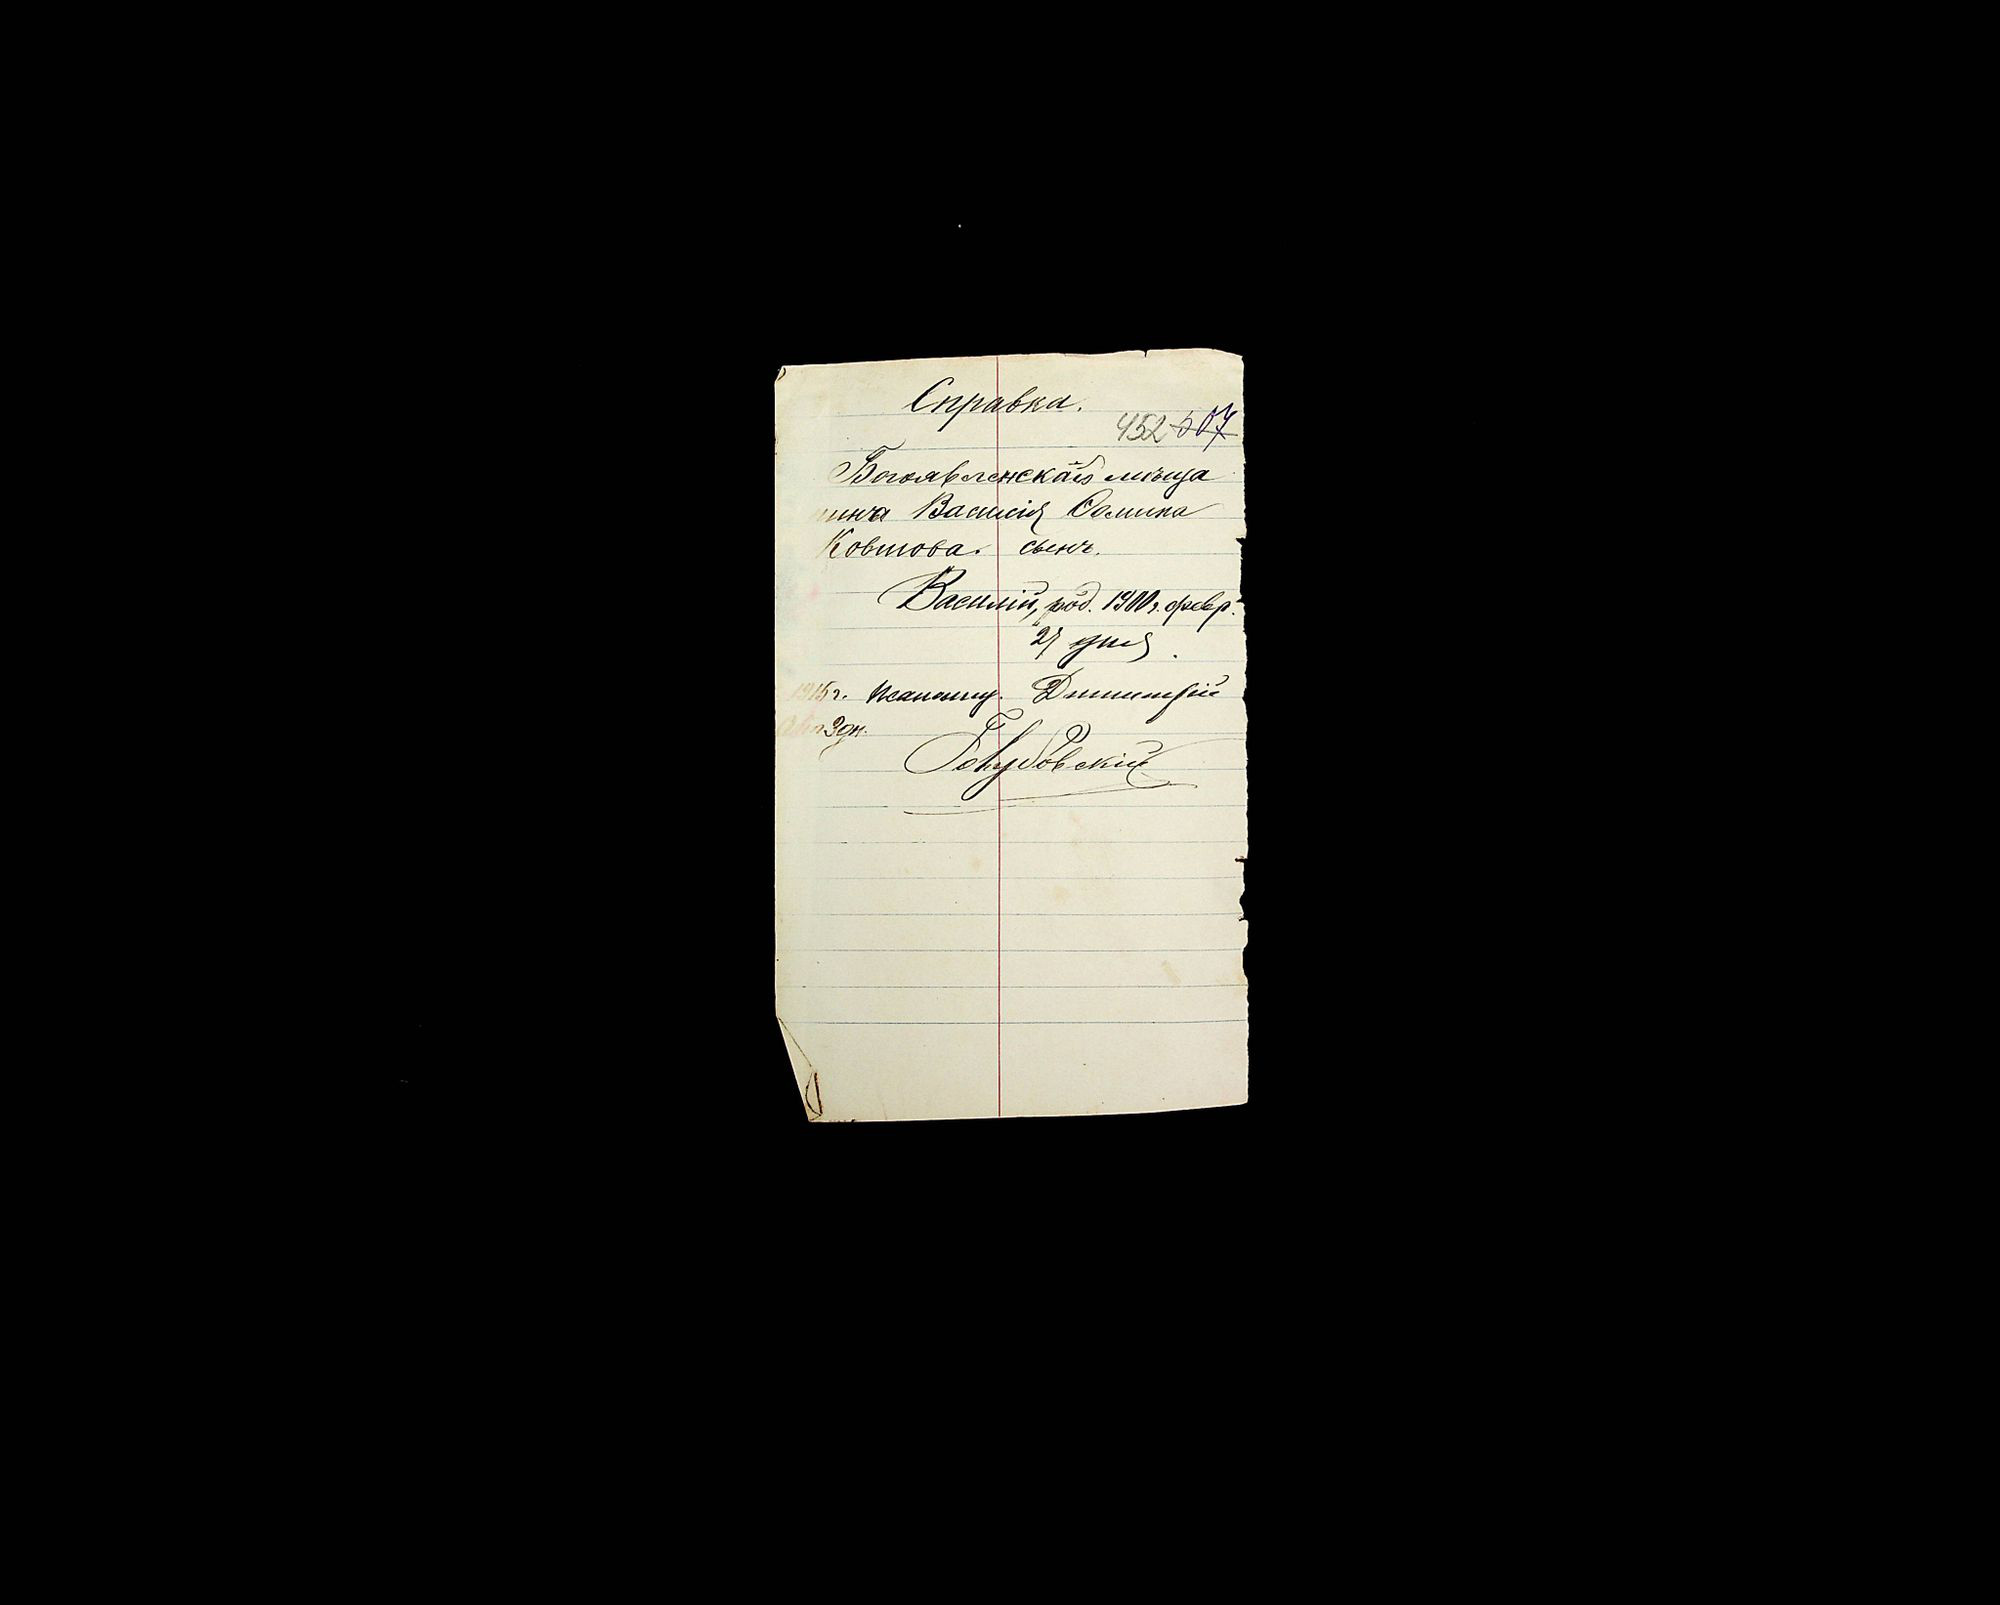 Справка.
452 507
Богоявленскаго мѣща
нина Василія Фомина
Ковшова. сынъ.
Василій, род. 1900 г. февр.
27 дня.
1915 г. Псаломщ. Димитрій
Авг. 3 дн.
Голубовскій